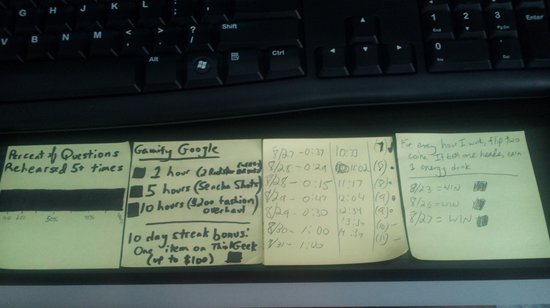 G
H
J
K
L
Enter
B
N
M
Shift
Alt
Ctrl
End
1
2
3
0
Ins
Percent of Questions
Rehearsed 5+ times
50%
Gamify Google
1 hour
5 hours
10 hours ($200 fashion)
overhaul
10 day streak bonus:
One item on ThinkGeek
(up to $100)
8/27 - 0:37 10:33
8/28 - 0:29 11:02 (8)
8/28 - 0:15 11:17 (8)
8/29 - 0:47 12:04 (9)
8/29 - 0:30 12:34 (9)
8/30 - 1:00 (10)
8/31 - 1:00 (11)
For every hour I work, flip two
coins. If both are heads, earn
1 energy drink
8/23 = WIN
8/26 = WIN
8/27 = WIN